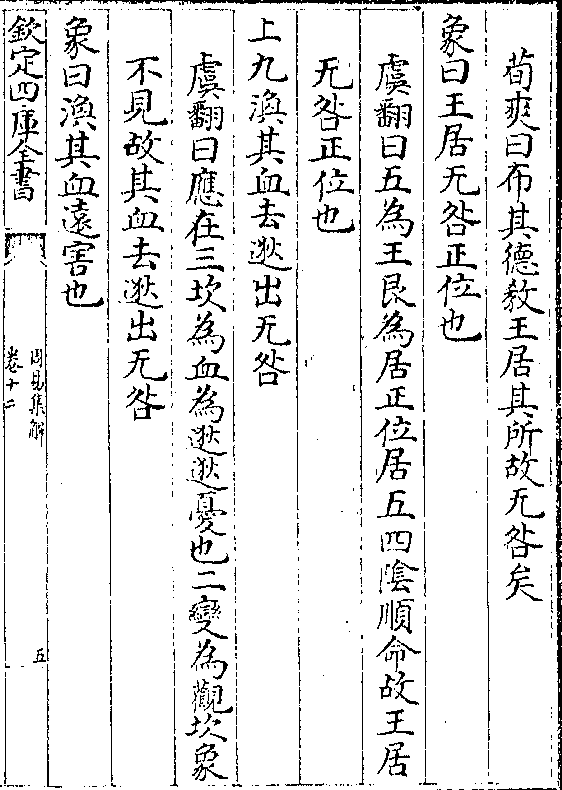 荀爽曰布其德教王居其所故无咎矣
象曰王居无咎正位也
虞翻曰五為王艮為居正位居五四陰順命故王居
无咎正位也
上九渙其血去逖出无咎
虞翻曰應在三坎為血為逖逖憂也二變為觀坎象
不見故其血去逖出无咎
象曰渙其血遠害也
欽定四庫全書
周易集解
卷十二
五